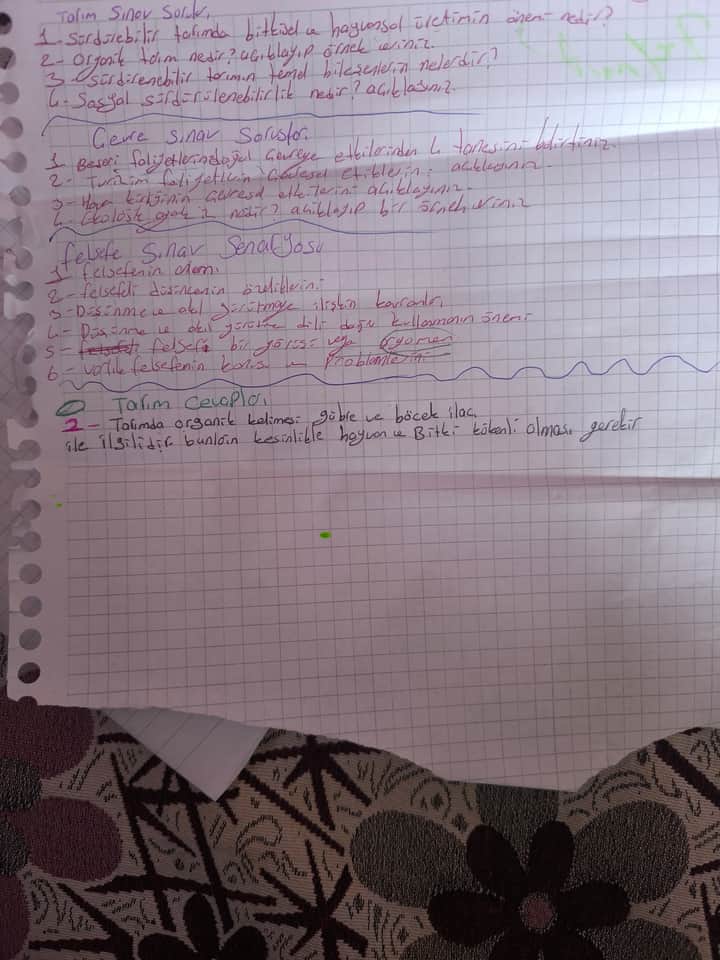 Tarım Sınav Soruları
1- Sürdürebilir tarımda bitkisel ve hayvansal üretimin önemi nedir?
2- Organik tarım nedir? açıklayıp örnek veriniz.
3- Sürdürenebilir tarımın temel bileşenlerin nelerdir?
4- Sosyal sürdürülenebilirlik nedir? açıklasınız.
Çevre Sınav Soruları
1 Beşeri faliyetlerin doğal çevreye etkilerinden 4 tanesini belirtiniz.
2- Turizim faliyetlerin çevresel etkilerini açıklayınız.
3- Hava kirliğinin çevresel etkilerini açıklayınız.
4- Ekolojik ayak izi nedir? açıklayıp bir örnek veriniz
felsefe Sınav Senaryosu
1 felsefenin anlamı
2- felsefi düşüncenin özelliklerini
3- Düşünme ve akıl yürütmeye ilişkin kavramlar
4- Düşünme ve akıl yürütme dili doğru kullanmanın önemi
5- felsefi bir görüşü veya
6- varlık felsefenin konusu ve Problemlerini
Tarım Cevapları
2- Tarımda organik kelimesi gübre ve böcek ilacı
ile ilgilidir bunların kesinlikle hayvan ve Bitki kökenli olması gerekir